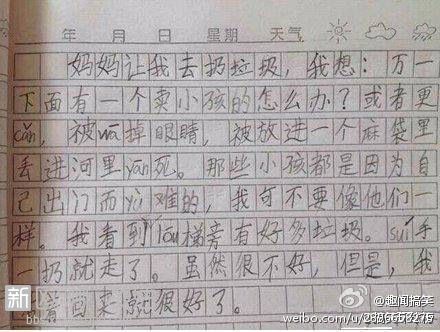 年 月 日 星期 天气
妈妈让我去扔垃圾，我想：万一
下面有一个卖小孩的怎么办？或者更
cǎn，被wā掉眼睛，被放进一个麻袋里
丢进河里yān死。那些小孩都是因为自
己出门而yù难的，我可不要像他们一
样。我看到lóu梯旁有好多垃圾。suí手
一扔就走了。虽然很不好，但是，我
着回来就很好了。
@趣闻搞笑
weibo.com/u/